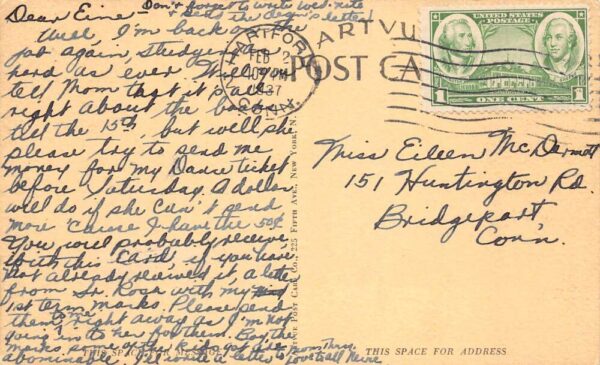 Don't forget to write Wed. nite
Dear Eine -
Well I'm back on the
job again, studying as
hard as ever. Will you
tell Mom that it's all
right about the
till the 15th, but will she
please try to send me
money for my Dance ticket
before Saturday. A dollar
will do if she can't send
more 'cause I have the 50¢
You will probably receive
with this card, if you have
not already received it, a letter
from Sr. Rose with my
1st term marks. Please send
them to me right away as I'm not
going in to her for them. Boy, the
marks some of the kids got are
abominable. I'll write a letter to Mom Thurs.
Love to all
HARTFORD
FEB 2
1937
CONN.
POST CARD
UNITED STATES POSTAGE
1 ONE CENT 1
Miss Eileen McDermott
151 Huntington Rd.
Bridgeport
Conn.
POST CARD CO., 225 FIFTH AVE., NEW YORK, N.
THIS SPACE FOR
THIS SPACE FOR ADDRESS